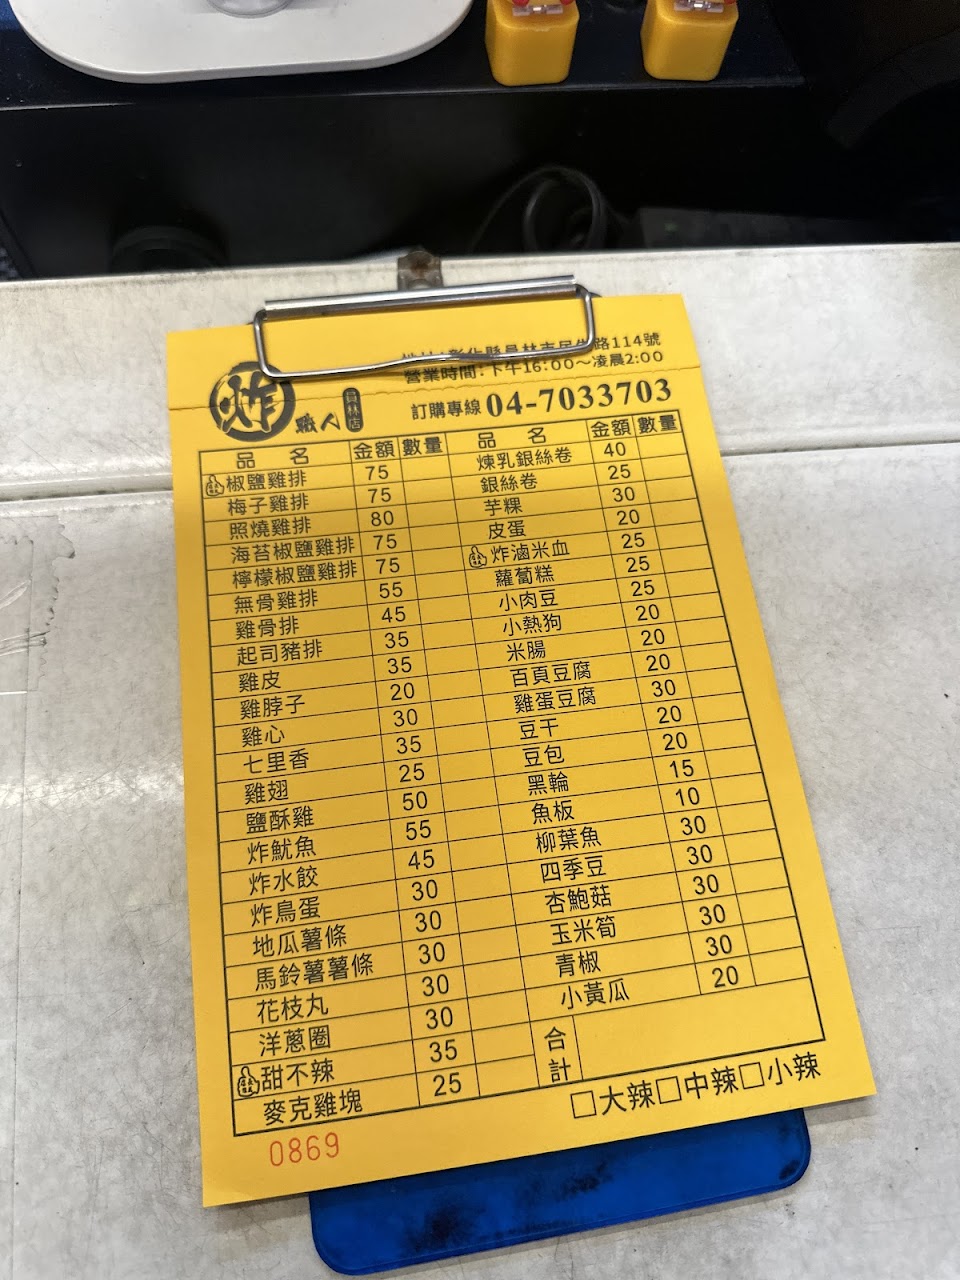 路114號
營業時間:下午16:00～凌晨2:00
炸 職人 員林店
訂購專線 04-7033703
品名 金額 數量 品名 金額 數量
椒鹽雞排 75 煉乳銀絲卷 40
梅子雞排 75 銀絲卷 25
照燒雞排 80 芋粿 30
海苔椒鹽雞排 75 皮蛋 20
檸檬椒鹽雞排 75 炸滷米血 25
無骨雞排 55 蘿蔔糕 25
雞骨排 45 小肉豆 25
起司豬排 35 小熱狗 20
雞皮 35 米腸 20
雞脖子 20 百頁豆腐 20
雞心 30 雞蛋豆腐 30
七里香 35 豆干 20
雞翅 25 豆包 20
鹽酥雞 50 黑輪 15
炸魷魚 55 魚板 10
炸水餃 45 柳葉魚 30
炸鳥蛋 30 四季豆 30
地瓜薯條 30 杏鮑菇 30
馬鈴薯薯條 30 玉米筍 30
花枝丸 30 青椒 30
洋蔥圈 30 小黃瓜 20
甜不辣 35 合計
麥克雞塊 25
□大辣□中辣□小辣
0869